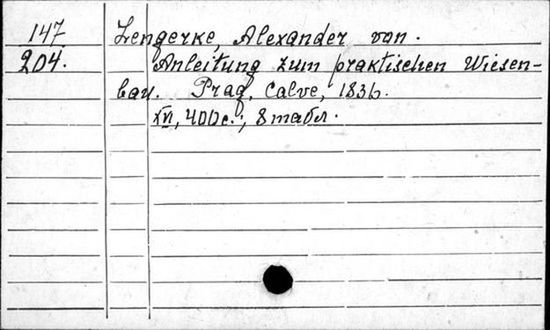 147 Lengerke, Alexander von.
204. Anleitung zum praktischen Wiesen-
bau. Prag, Calve, 1836.
XII, 400 с.; 8 табл.